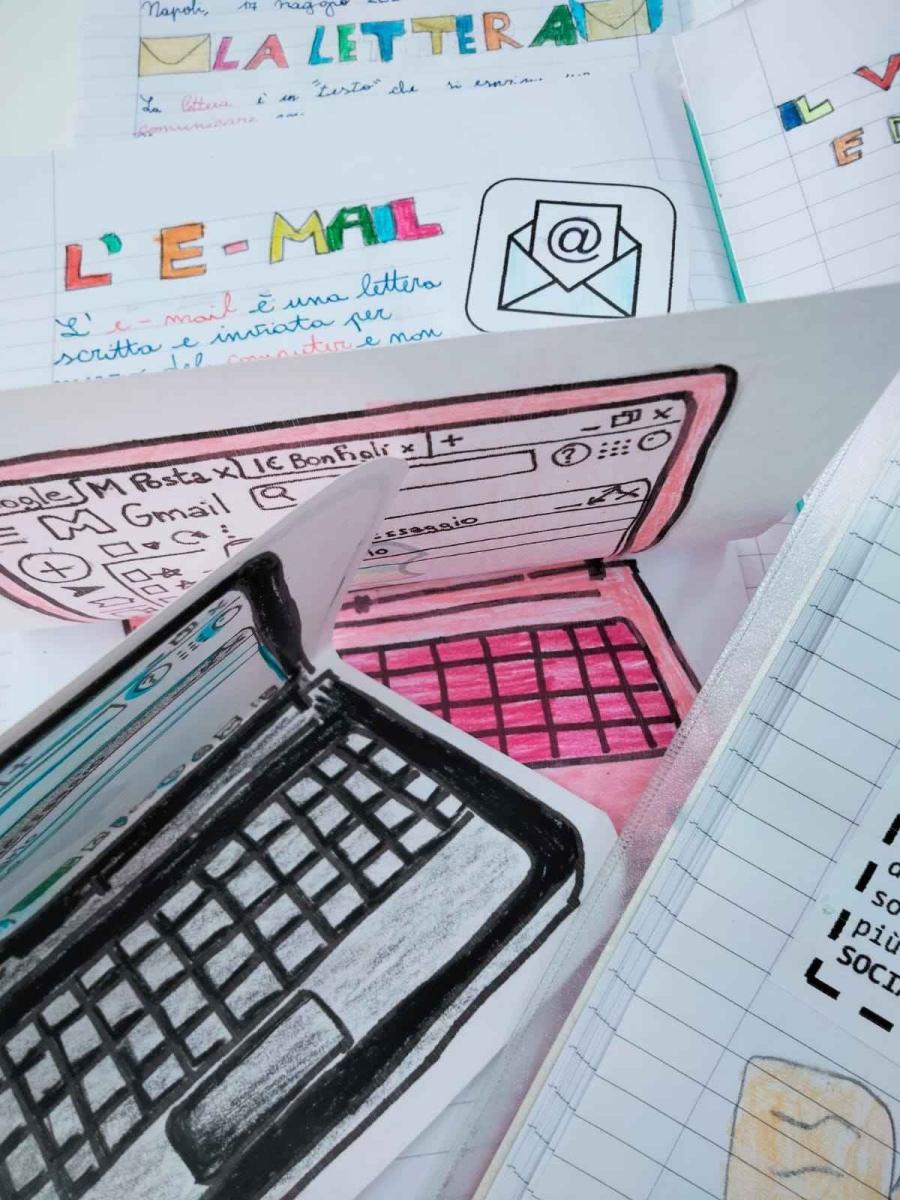 Napoli, 17 maggio
LA LETTERA
La lettera è un "testo" che si
comunicare
IL V
E D
L'E-MAIL
@
L' e-mail è una lettera
scritta e inviata per
del computer e non
ogle M Posta x IC Bonfigli x +
M Gmail
ssaggio
so
più
SOCI